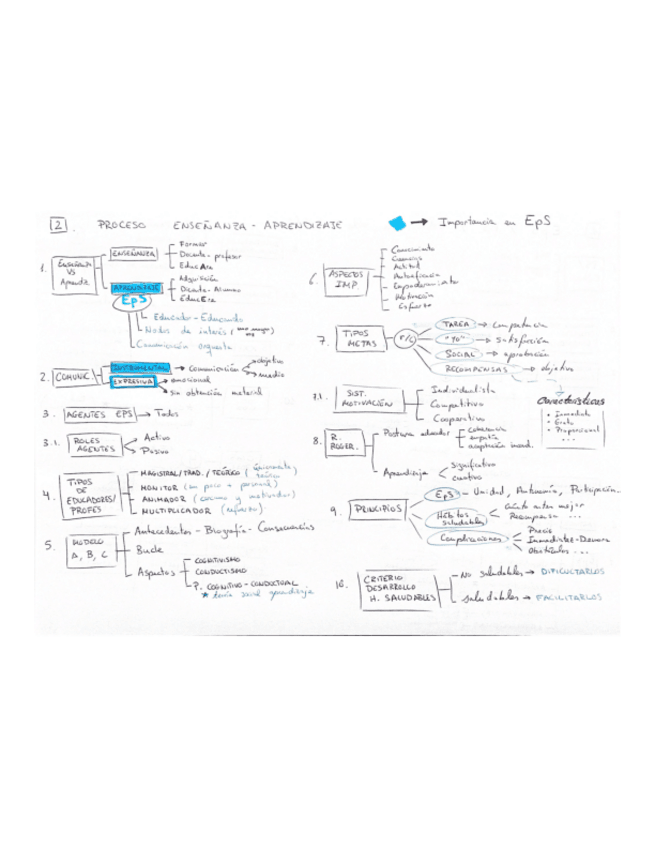 2. PROCESO ENSEÑANZA - APRENDIZAJE
→ Importancia en EpS
1. ENSEÑANZA VS Aprendiz.
ENSEÑANZA
Formar
Docente - profesor
EducAr
APRENDIZAJE
EpS
Adquisición
Discente - Alumno
Educador - Educando
Nodos de interés
Comunicación orquesta
2. COMUNIC
INSTRUMENTAL → comunicación
objetivo
medio
EXPRESIVA
emocional
sin obtención material
3. AGENTES EPS → Todos
3.1. ROLES AGENTES
Activo
Pasivo
4. TIPOS DE EDUCADORES/ PROFES
MAGISTRAL/TRAD./TEÓRICO (únicamente teórico)
MONITOR (un poco + personal)
ANIMADOR (cercano y motivador)
MULTIPLICADOR (refuerzo)
5. MODELO A, B, C
Antecedentes - Biografía - Consecuencias
Bucle
Aspectos
COGNITIVISMO
CONDUCTISMO
P. COGNITIVO - CONDUCTUAL
* teoría social aprendizaje
6. ASPECTOS IMP
Conocimiento
Creencias
Actitud
Autoeficacia
Empoderamiento
Motivación
Esfuerzo
7. TIPOS METAS
TAREA → competencia
"YO" → satisfacción
SOCIAL → aprobación
RECOMPENSAS → objetivo
Características
• Inmediata
• Grata
• Proporcional
...
7.1. SIST. MOTIVACIÓN
Individualista
Competitivo
Cooperativo
8. R. ROGER.
Postura educador
coherencia
empatía
aceptación incond.
Aprendizaje
significativo
9. PRINCIPIOS
EpS - Unidad, Autonomía, Participación.
Hábitos saludables
Cuánto antes mejor
Recompensa ...
Complicaciones
Precio
Inmediatez - Demora
Obstáculos ...
10. CRITERIO DESARROLLO H. SALUDABLES
No saludables → DIFICULTARLOS
Saludables → FACILITARLOS